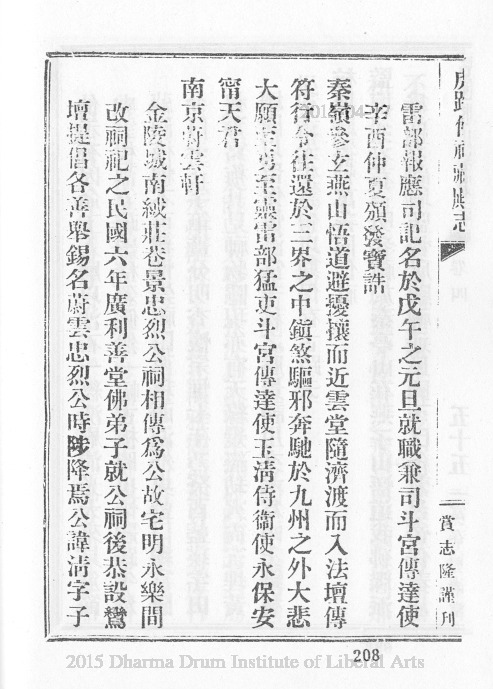 虎跑佛祖藏殿志
卷四
五十五
賞志隆謹刊
雷部報應司記名於戊午之元旦就職兼司斗宮傳達使
辛酉仲夏頒發寶誥
秦嶺參玄燕山悟道避擾攘而近雲堂隨濟渡而入法壇傳
符行令往還於三界之中鎮煞驅邪奔馳於九州之外大悲
大願至勇至靈雷部猛吏斗宮傳達使玉淸侍衞使永保安
甯天君
南京蔚雲軒
金陵城南絨莊巷景忠烈公祠相傳爲公故宅明永樂間
改祠祀之民國六年廣利善堂佛弟子就公祠後恭設鸞
壇提倡各善舉錫名蔚雲忠烈公時陟降焉公諱淸字子
208
2015 Dharma Drum Institute of Liberal Arts